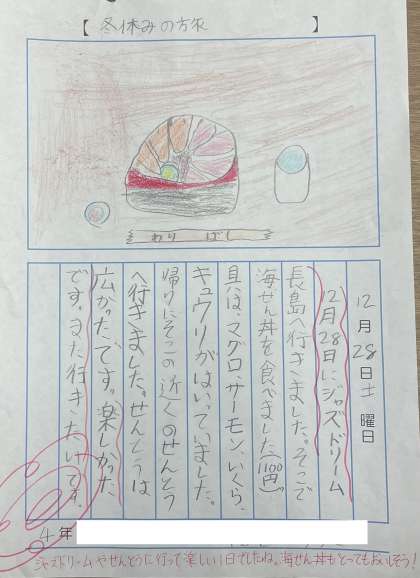 【冬休みの旅】
わりばし
12月28日土曜日
12月28日にジャズドリーム
長島へ行きました。そこで
海せん丼を食べました(1100円)。
具は、マグロ、サーモン、いくら、
キュウリがはいっていました。
帰りにそこの近くのせんとう
へ行きました。せんとうは
広かったです。楽しかった
です。また行きたいです。
4年
ジャズドリームやせんとうに行って楽しい1日でしたね。海せん丼もとってもおいしそう!